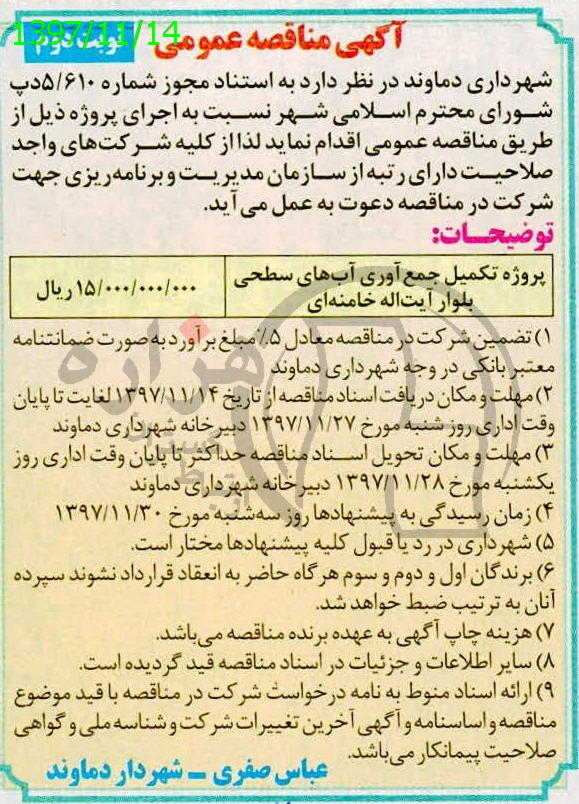 1397/11/14
آگهی مناقصه عمومی
نوبت دوم
شهرداری دماوند در نظر دارد به استناد مجوز شماره ۵/۶۱۰دپ
شورای محترم اسلامی شهر نسبت به اجرای پروژه ذیل از
طریق مناقصه عمومی اقدام نماید لذا از کلیه شرکت‌های واجد
صلاحیت دارای رتبه از سازمان مدیریت و برنامه‌ریزی جهت
شرکت در مناقصه دعوت به عمل می‌آید.
توضیحات:
پروژه تکمیل جمع‌آوری آب‌های سطحی
بلوار آیت‌اله خامنه‌ای
۱۵/۰۰۰/۰۰۰/۰۰۰ ریال
۱) تضمین شرکت در مناقصه معادل ۵٪ مبلغ برآورد به صورت ضمانتنامه
معتبر بانکی در وجه شهرداری دماوند
۲) مهلت و مکان دریافت اسناد مناقصه از تاریخ ۱۳۹۷/۱۱/۱۴ لغایت تا پایان
وقت اداری روز شنبه مورخ ۱۳۹۷/۱۱/۲۷ دبیرخانه شهرداری دماوند
۳) مهلت و مکان تحویل اسناد مناقصه حداکثر تا پایان وقت اداری روز
یکشنبه مورخ ۱۳۹۷/۱۱/۲۸ دبیرخانه شهرداری دماوند
۴) زمان رسیدگی به پیشنهادها روز سه‌شنبه مورخ ۱۳۹۷/۱۱/۳۰
۵) شهرداری در رد یا قبول کلیه پیشنهادها مختار است.
۶) برندگان اول و دوم و سوم هرگاه حاضر به انعقاد قرارداد نشوند سپرده
آنان به ترتیب ضبط خواهد شد.
۷) هزینه چاپ آگهی به عهده برنده مناقصه می‌باشد.
۸) سایر اطلاعات و جزئیات در اسناد مناقصه قید گردیده است.
۹) ارائه اسناد منوط به نامه درخواست شرکت در مناقصه با قید موضوع
مناقصه و اساسنامه و آگهی آخرین تغییرات شرکت و شناسه ملی و گواهی
صلاحیت پیمانکار می‌باشد.
عباس صفری ــ شهردار دماوند
هزاره